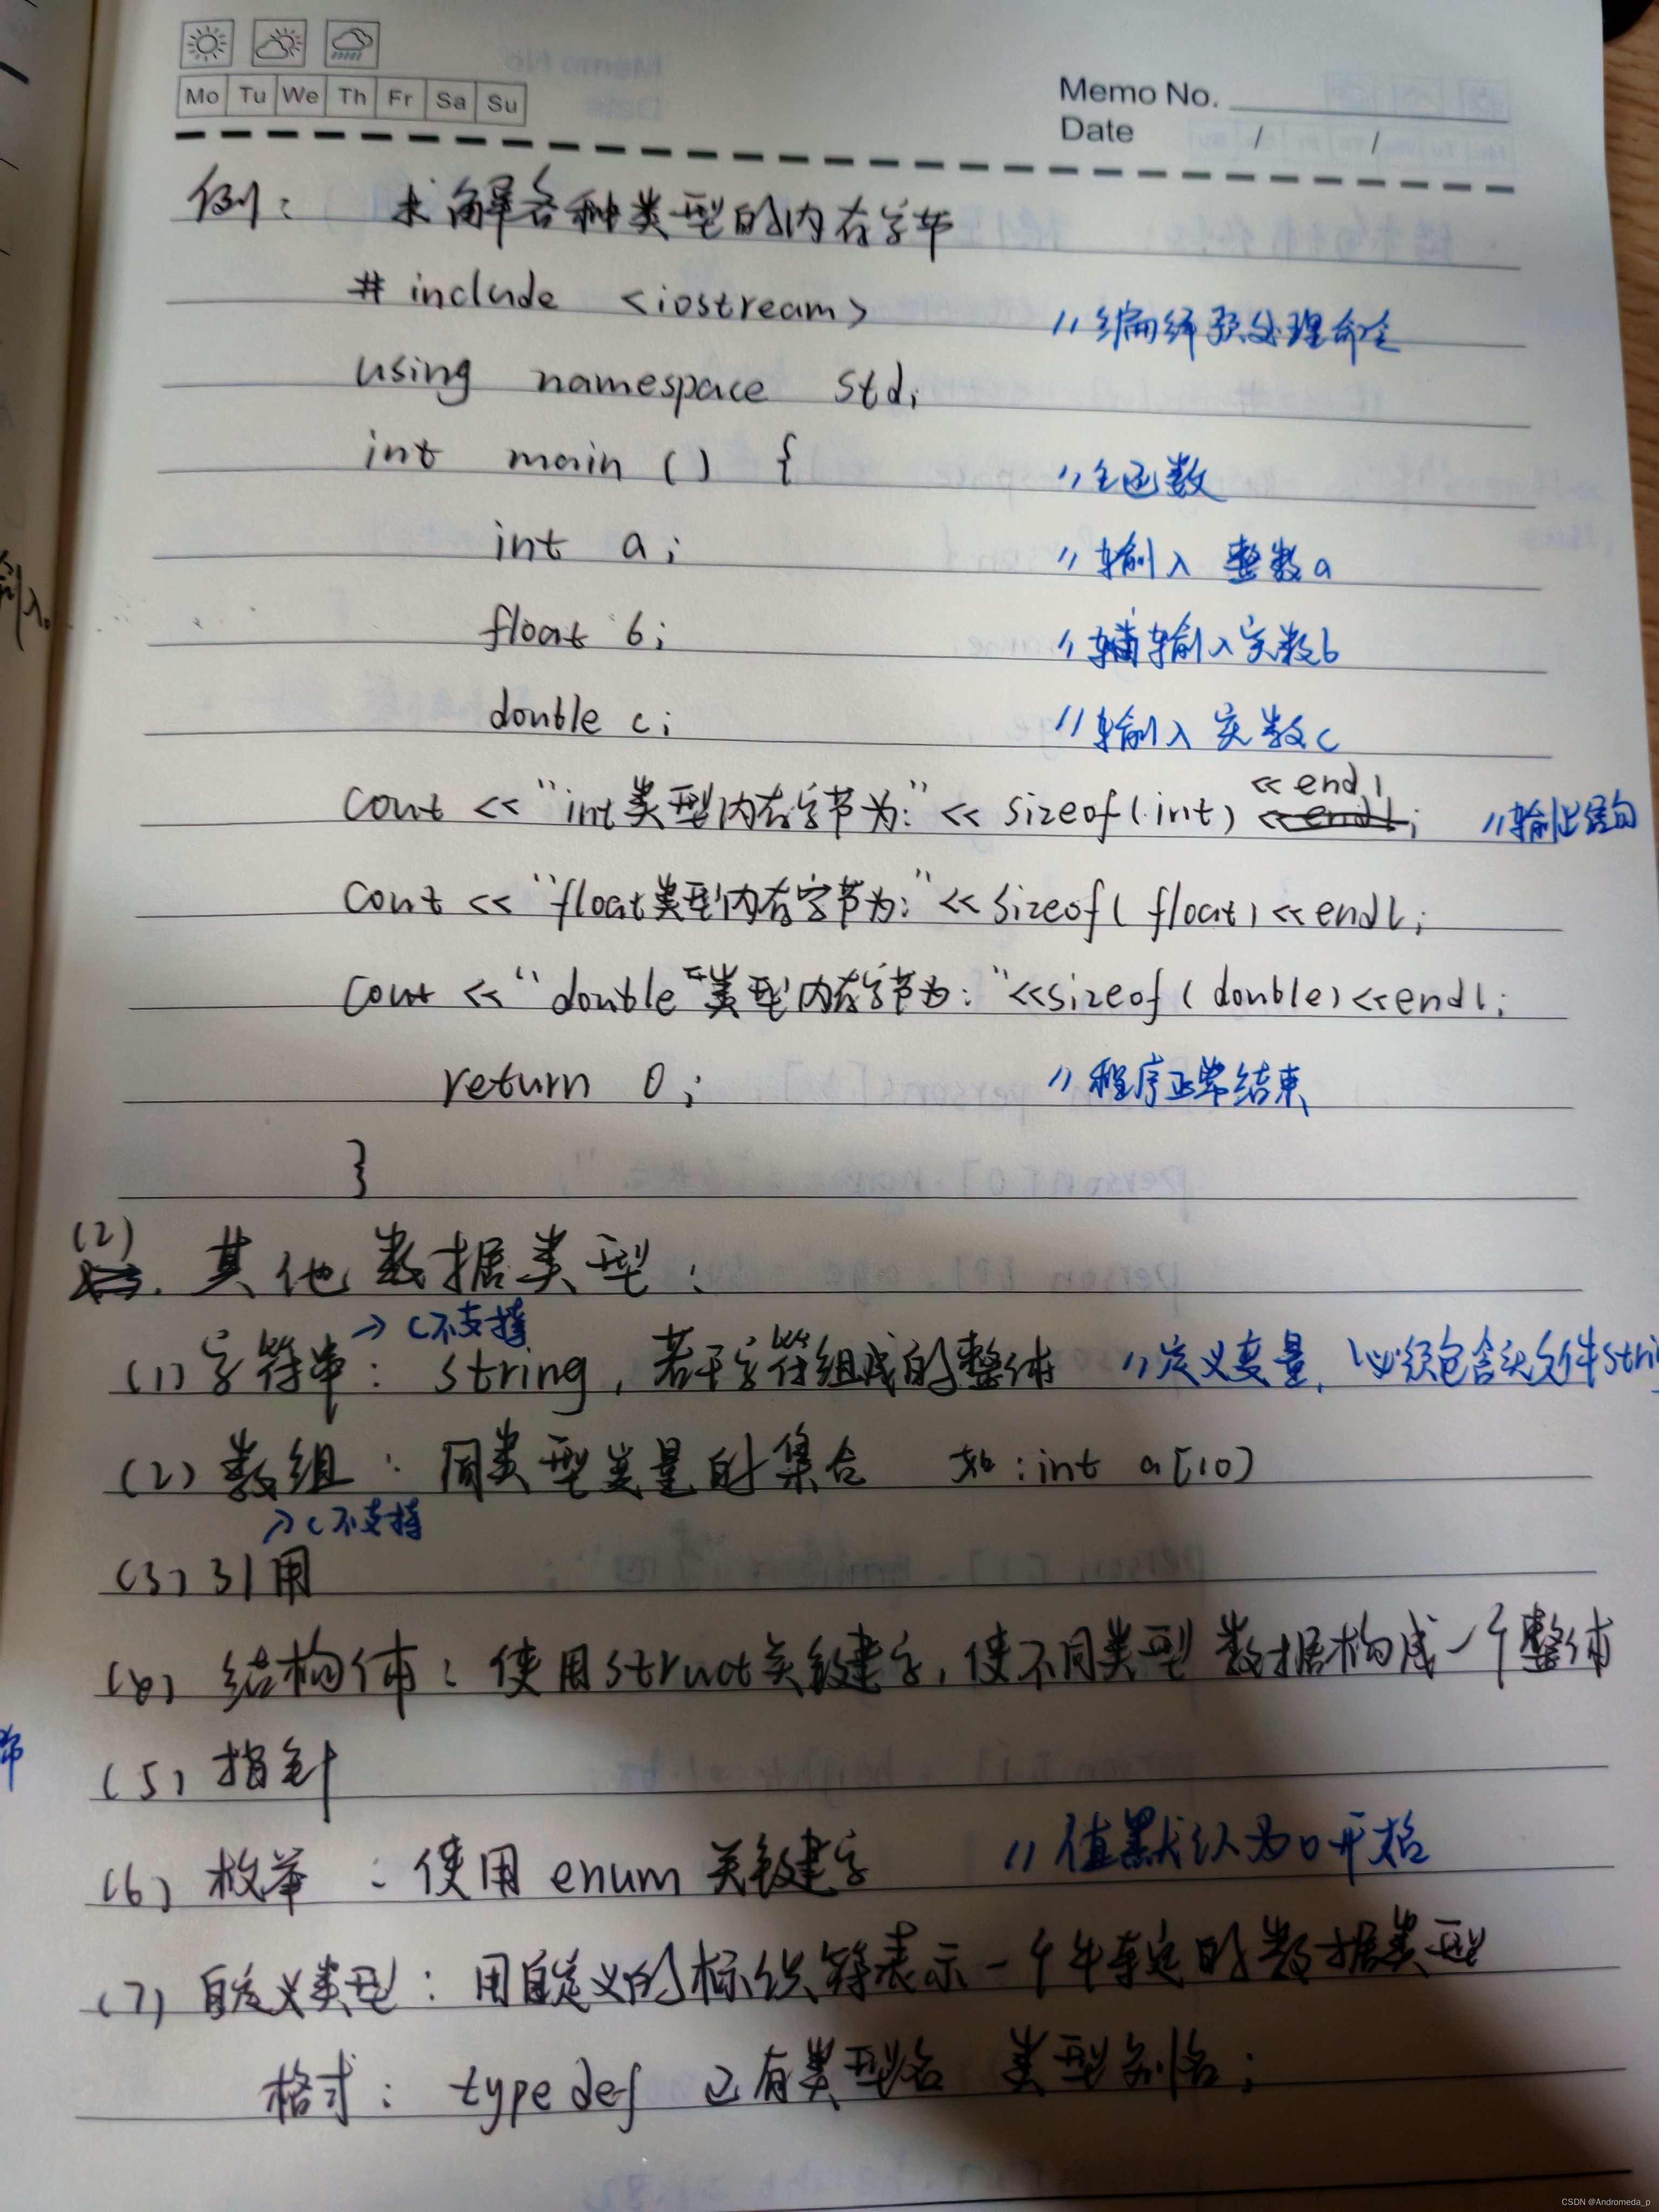 Mo Tu We Th Fr Sa Su
Memo No.
Date / /
例： 求解各种类型的内存字节
# include <iostream> //编译预处理命令
using namespace std;
int main () { //主函数
int a; //输入 整数a
float b; //输入实数b
double c; //输入 实数c
<<endl
cout << "int类型内存字节为:" << sizeof(int) ; //输出语句
cout << "float类型内存字节为:" << sizeof(float) <<endl;
cout << "double类型内存字节为:" <<sizeof(double)<<endl;
return 0; //程序正常结束
}
(2)
其他数据类型：
→ C不支持
(1) 字符串： string，若干字符组成的整体 //定义变量，必须包含头文件stri
(2) 数组：同类型变量的集合 如：int a[10]
→ C不支持
(3) 引用
结构体：使用struct关键字，使不同类型数据构成一个整体
(5) 指针
(6) 枚举：使用 enum 关键字 //值默认为0开始
(7) 自定义类型：用自定义的标识符表示一个特定的数据类型
格式： typedef 已有类型名 类型别名；
输入。
CSDN @Andromeda_p